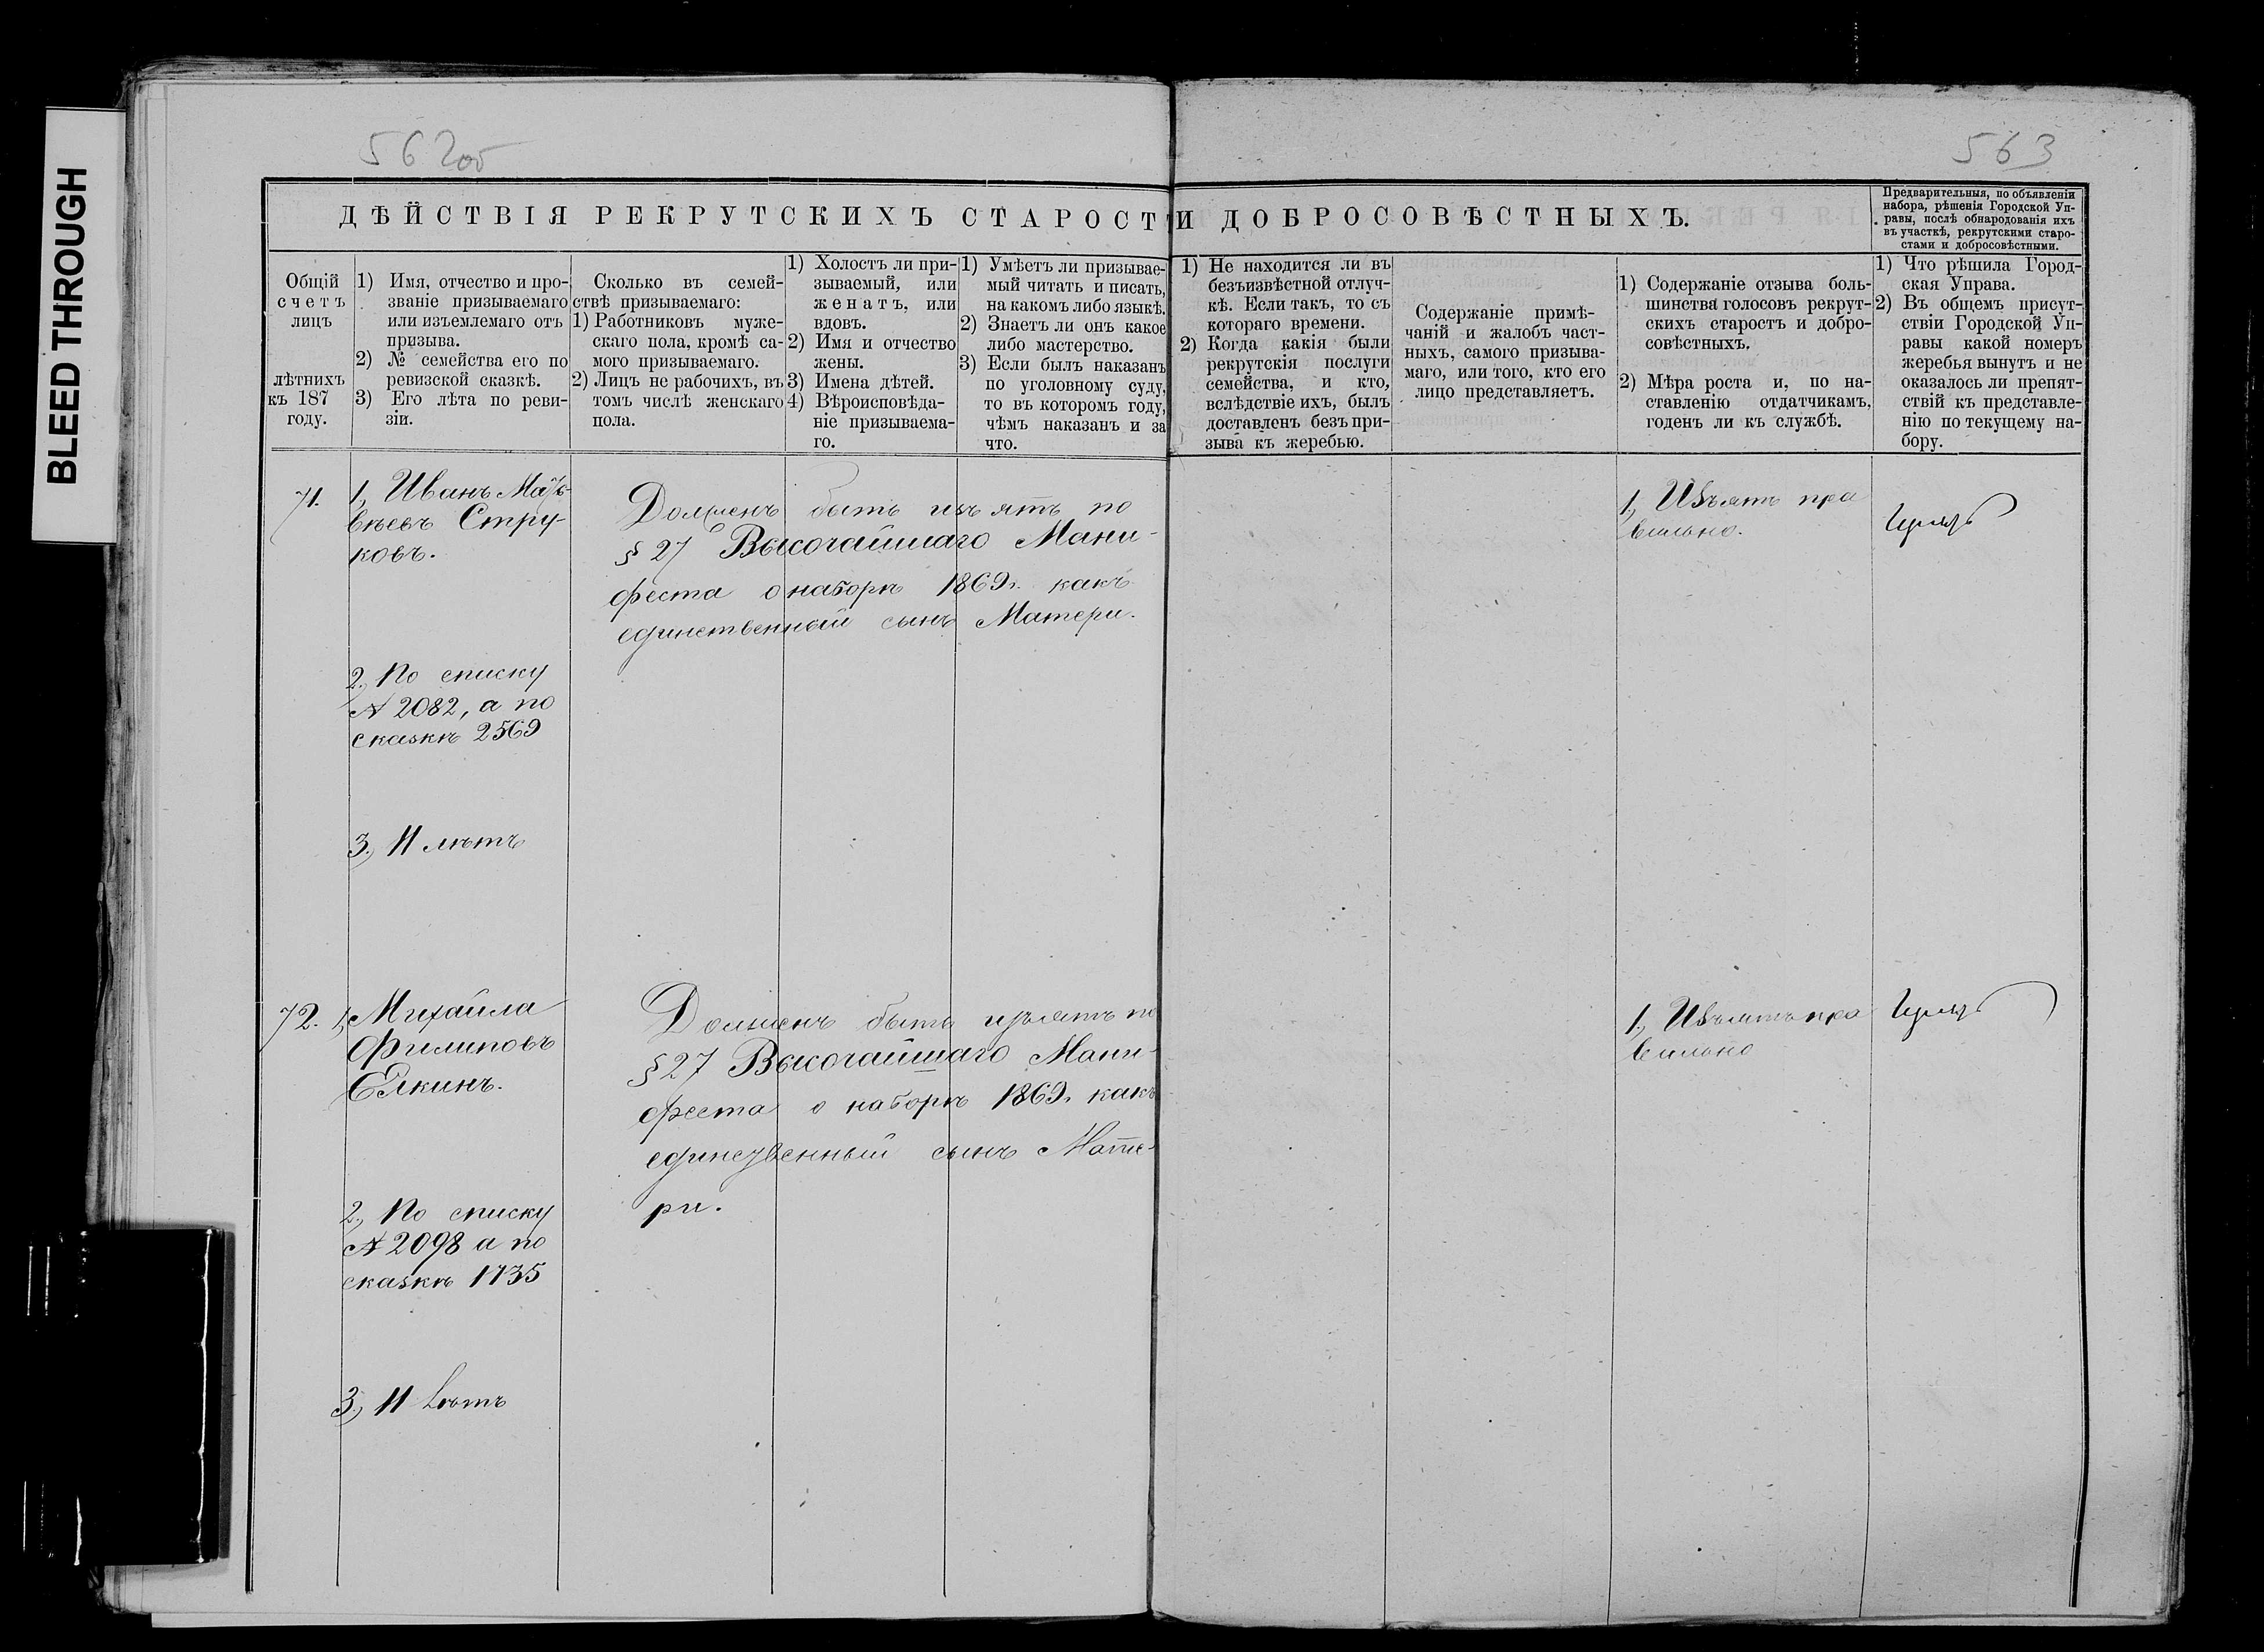 BLEED THROUGH
562об
563
ДѢЙСТВІЯ РЕКРУТСКИХЪ СТАРОСТЪ И ДОБРОСОВѢСТНЫХЪ.
Предварительныя, по объявленіи
набора, рѣшенія Городской Уп-
равы, послѣ обнародованія ихъ
въ участкѣ, рекрутскими старо-
стами и добросовѣстными.
Общій
счетъ
лицъ
лѣтнихъ
къ 187
году.
1) Имя, отчество и про-
званіе призываемаго
или изъемлемаго отъ
призыва.
2) № семейства его по
ревизской сказкѣ.
3) Его лѣта по реви-
зіи.
Сколько въ семей-
ствѣ призываемаго:
1) Работниковъ муже-
скаго пола, кромѣ са-
мого призываемаго.
2) Лицъ не рабочихъ, въ
томъ числѣ женскаго
пола.
1) Холостъ ли при-
зываемый, или
женатъ, или
вдовъ.
2) Имя и отчество
жены.
3) Имена дѣтей.
4) Вѣроисповѣда-
ніе призываема-
го.
1) Умѣетъ ли призывае-
мый читать и писать,
на какомъ либо языкѣ.
2) Знаетъ ли онъ какое
либо мастерство.
3) Если былъ наказанъ
по уголовному суду,
то въ которомъ году,
чѣмъ наказанъ и за
что.
1) Не находится ли въ
безъизвѣстной отлуч-
кѣ. Если такъ, то съ
котораго времени.
2) Когда какія были
рекрутскія послуги
семейства, и кто,
вслѣдствіе ихъ, былъ
доставленъ безъ при-
зыва къ жеребью.
Содержаніе примѣ-
чаній и жалобъ част-
ныхъ, самого призыва-
маго, или того, кто его
лицо представляетъ.
1) Содержаніе отзыва боль-
шинства голосовъ рекрут-
скихъ старостъ и добро-
совѣстныхъ.
2) Мѣра роста и, по на-
ставленію отдатчикамъ,
годенъ ли къ службѣ.
1) Что рѣшила Город-
ская Управа.
2) Въ общемъ присут-
ствіи Городской Уп-
равы какой номеръ
жеребья вынутъ и не
оказалось ли препят-
ствій къ представле-
нію по текущему на-
бору.
71.
1, Иванъ Мат-
вѣевъ Стру-
ковъ.
2, По списку
№ 2082, а по
сказкѣ 2569
3, 11 лѣтъ
Долженъ быть изъятъ по
§ 27 Высочайшаго Мани-
феста о наборѣ 1869г. какъ
единственный сынъ Матери.
1, Изъятъ пра
вильно.
72.
1, Михайла
Филиповъ
Елкинъ.
2, По списку
№ 2098 а по
сказкѣ 1735
3, 11 Лѣтъ
Долженъ быть изъятъ по
§ 27 Высочайшаго Мани-
феста о наборѣ 1869г. какъ
единственный сынъ Мате-
ри.
1, Изъятъ пра
вильно